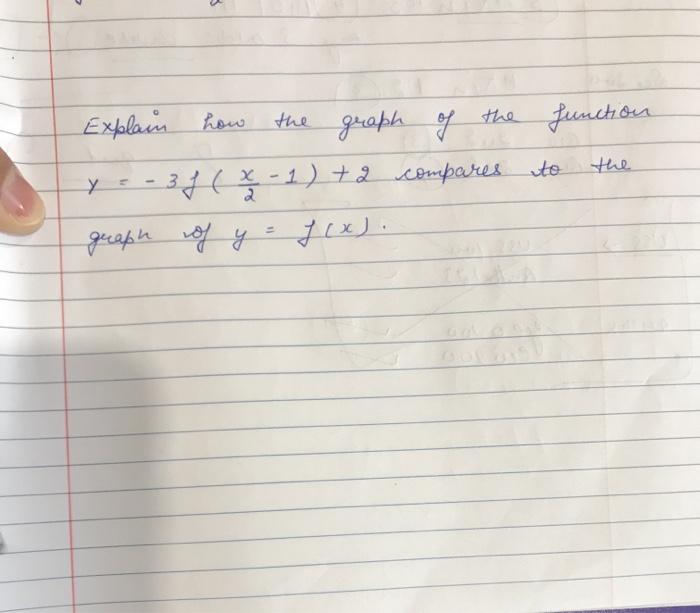 Explain how the graph of the function
y = - 3f ( x/2 - 1 ) + 2 compares to the
graph of y = f(x).